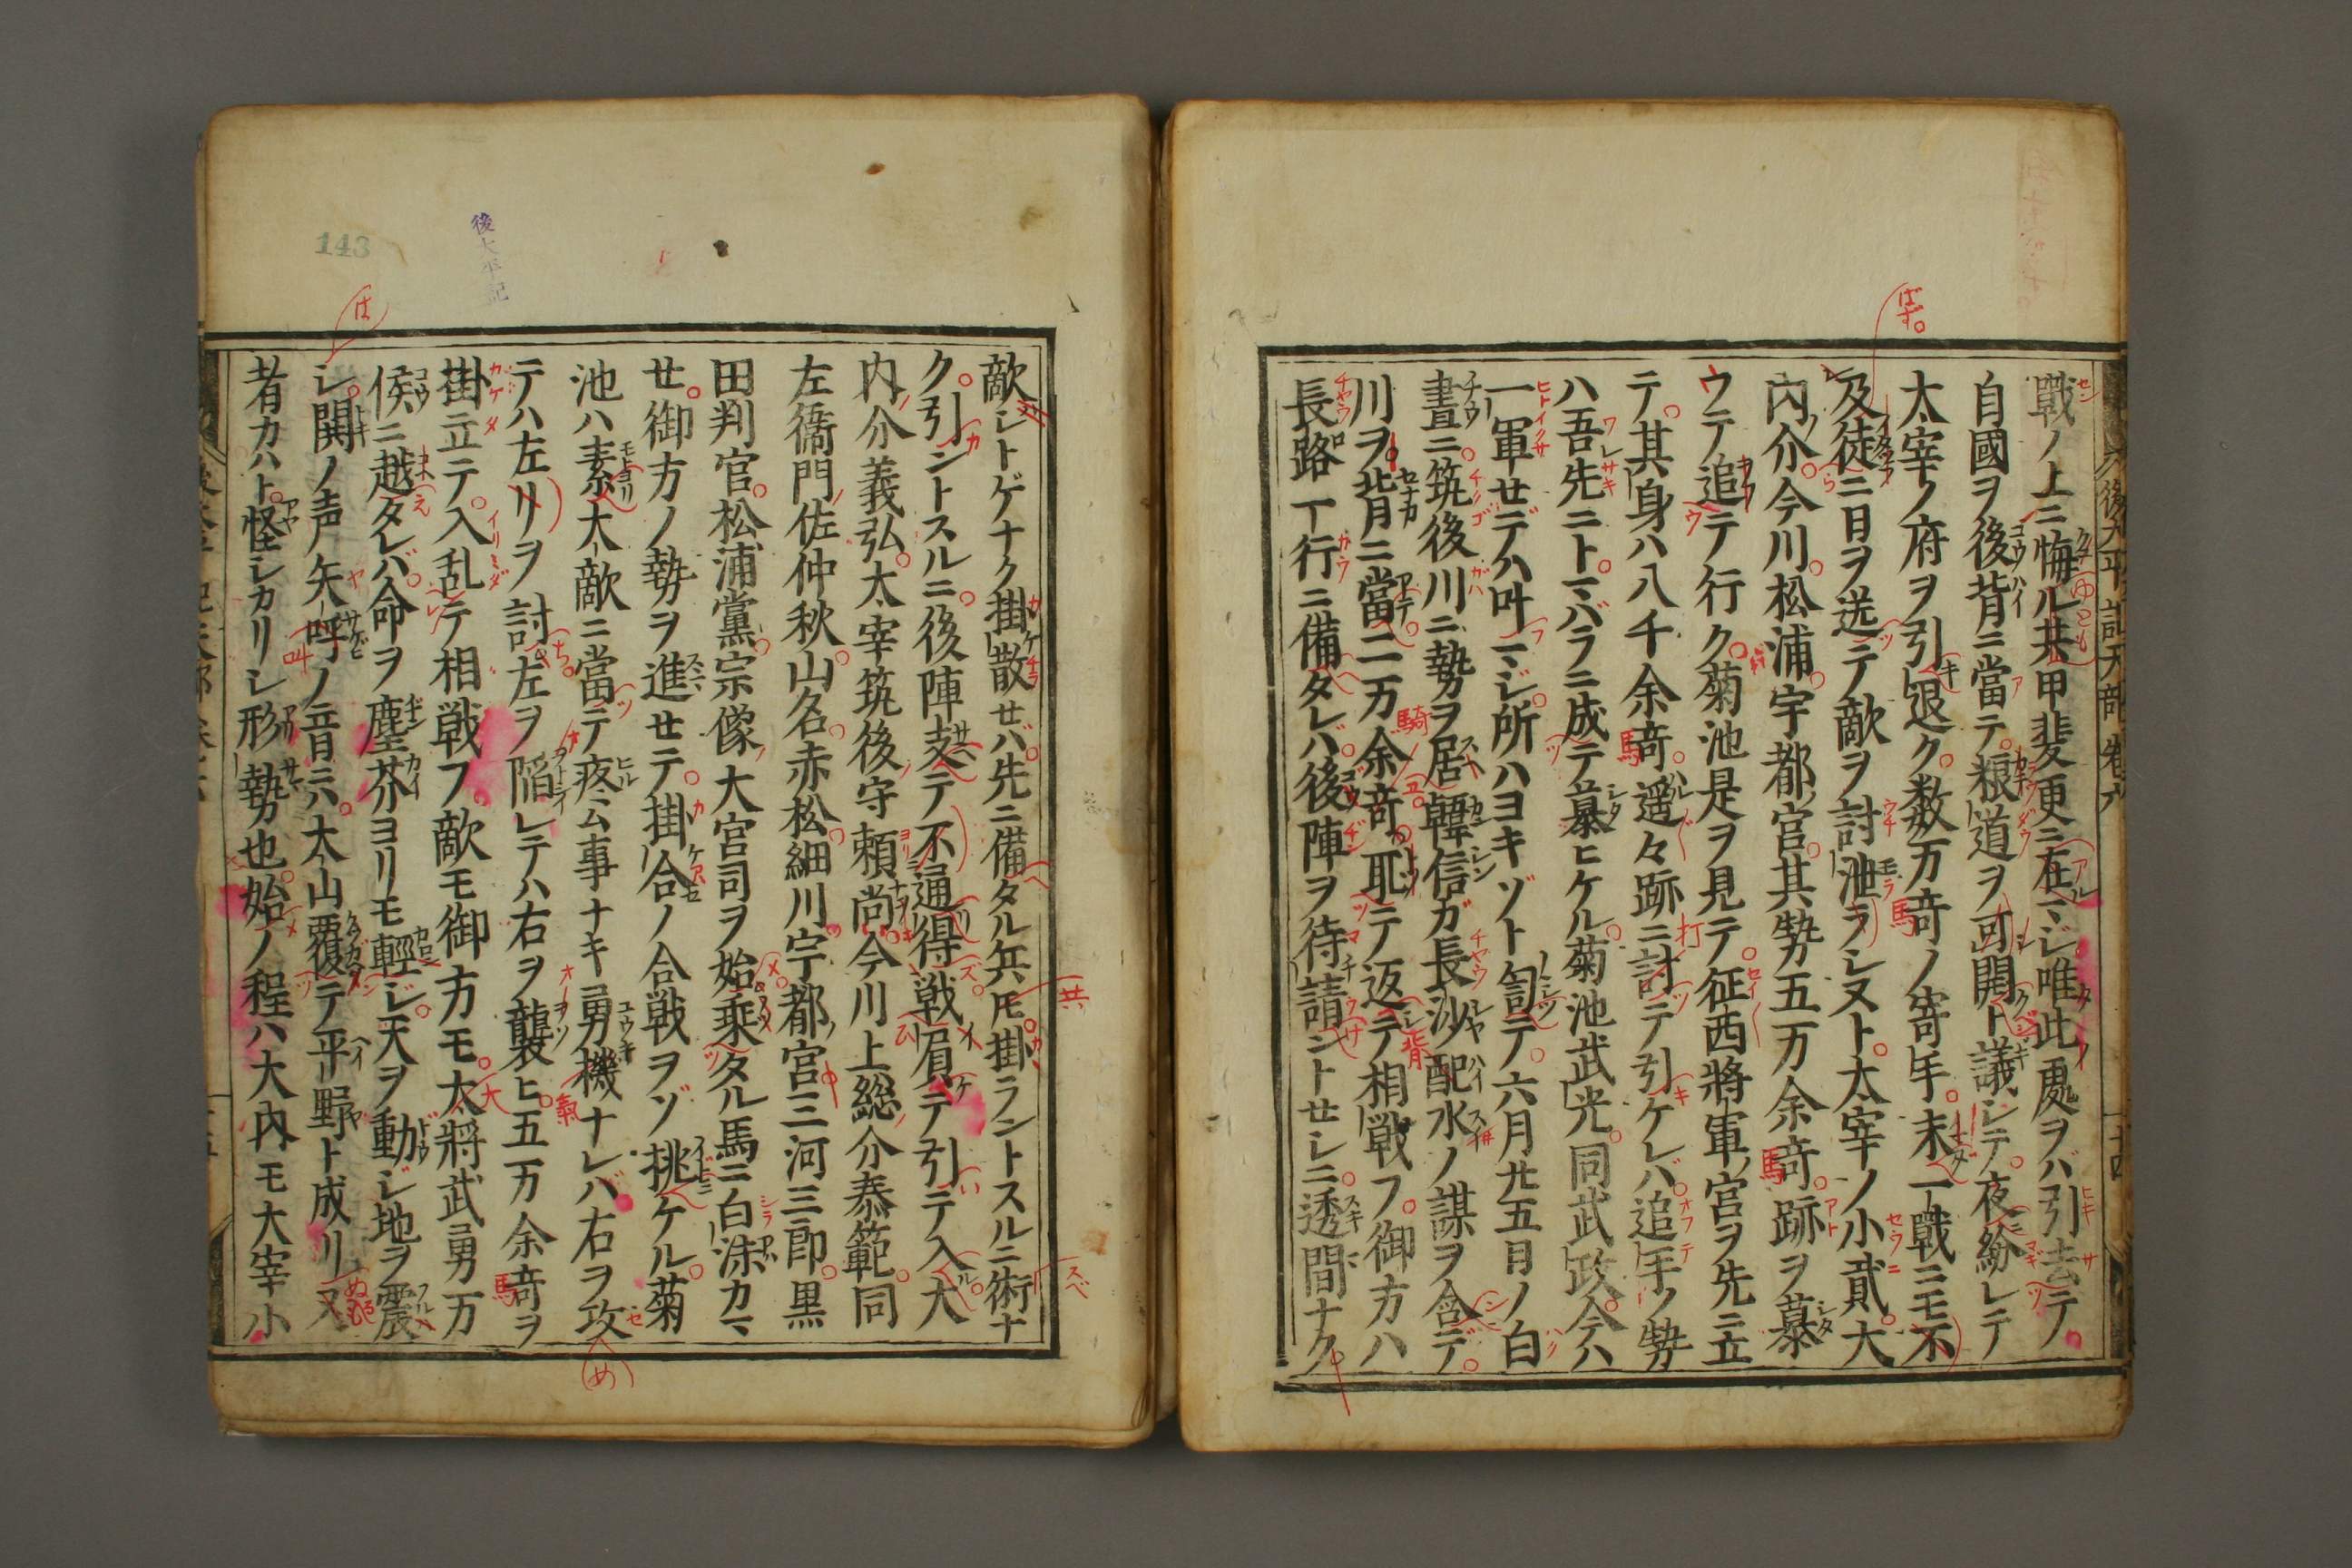 後太平記天部 卷六
戰ノ上ニ悔ル共甲斐更ニ在マジ唯此處ヲバ引去テ
自國ヲ後背ニ當テ粮道ヲ可開ト議シテ夜紛レテ
太宰ノ府ヲ引退ク数万竒ノ寄手末一戰ニモ不
及徒ニ日ヲ送テ敵ヲ討泄ラシヌト太宰ノ小貳大
內介今川松浦宇都宮其勢五万余竒跡ヲ慕
ウテ追テ行ク菊池是ヲ見テ征西將軍ノ宮ヲ先ニ立
テ其身ハ八千余竒遥々跡ニ討テ引ケレバ追手ノ勢
ハ吾先ニトマバラニ成テ慕ヒケル菊池武光同武政今ハ
一軍セデハ叶マジ所ハヨキゾト訇テ六月廿五日ノ白
晝ニ筑後川ニ勢ヲ居韓信ガ長沙配水ノ謀ヲ含デ
川ヲ背ニ當二万余竒耻テ返テ相戦フ御方ハ
長路丁行ニ備タレバ後陣ヲ待請ントセシニ透間ナク
143
後太平記
敵シトゲナク掛散せバ先ニ備タル兵圧掛ラントスルニ術ナ
ク引ントスルニ後陣支テ不通得戦眉テ引テ入大
内介義弘太宰筑後守頼尚今川上総介泰範同
左衞門佐仲秋山名赤松細川宇都宮三河三郎黒
田判官松浦黨宗像大宮司ヲ始乘タル馬ニ白沫カマ
せ御方ノ勢ヲ進せテ掛合ノ合戦ヲゾ挑ケル菊
池ハ素大敵ニ當テ疼ム事ナキ勇機ナレバ右ヲ攻
テハ左リヲ討左ヲ陥レテハ右ヲ襲ヒ五万余竒ヲ
掛立テ入乱テ相戦フ敵モ御方モ太將武勇万
侯ニ越タレバ命ヲ塵芥ヨリモ輕ジ天ヲ動ジ地ヲ震
レ閧ノ声矢呼ノ音ニハ大山覆テ平野ト成リ又
者カハト怪シカリシ形勢也始ノ程ハ大內モ大宰小